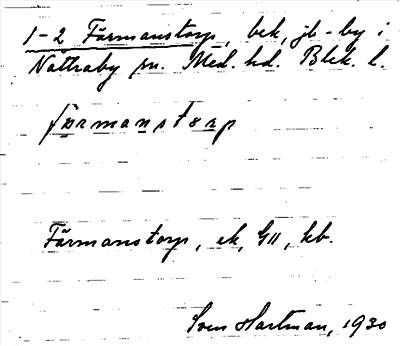 1-2 Färmanstorp, bek, jb-by i
Nättraby sn. Med. hd. Blek. l.
färmanstorp
Färmanstorp, ek, GII, kb.
Sven Hartman, 1930